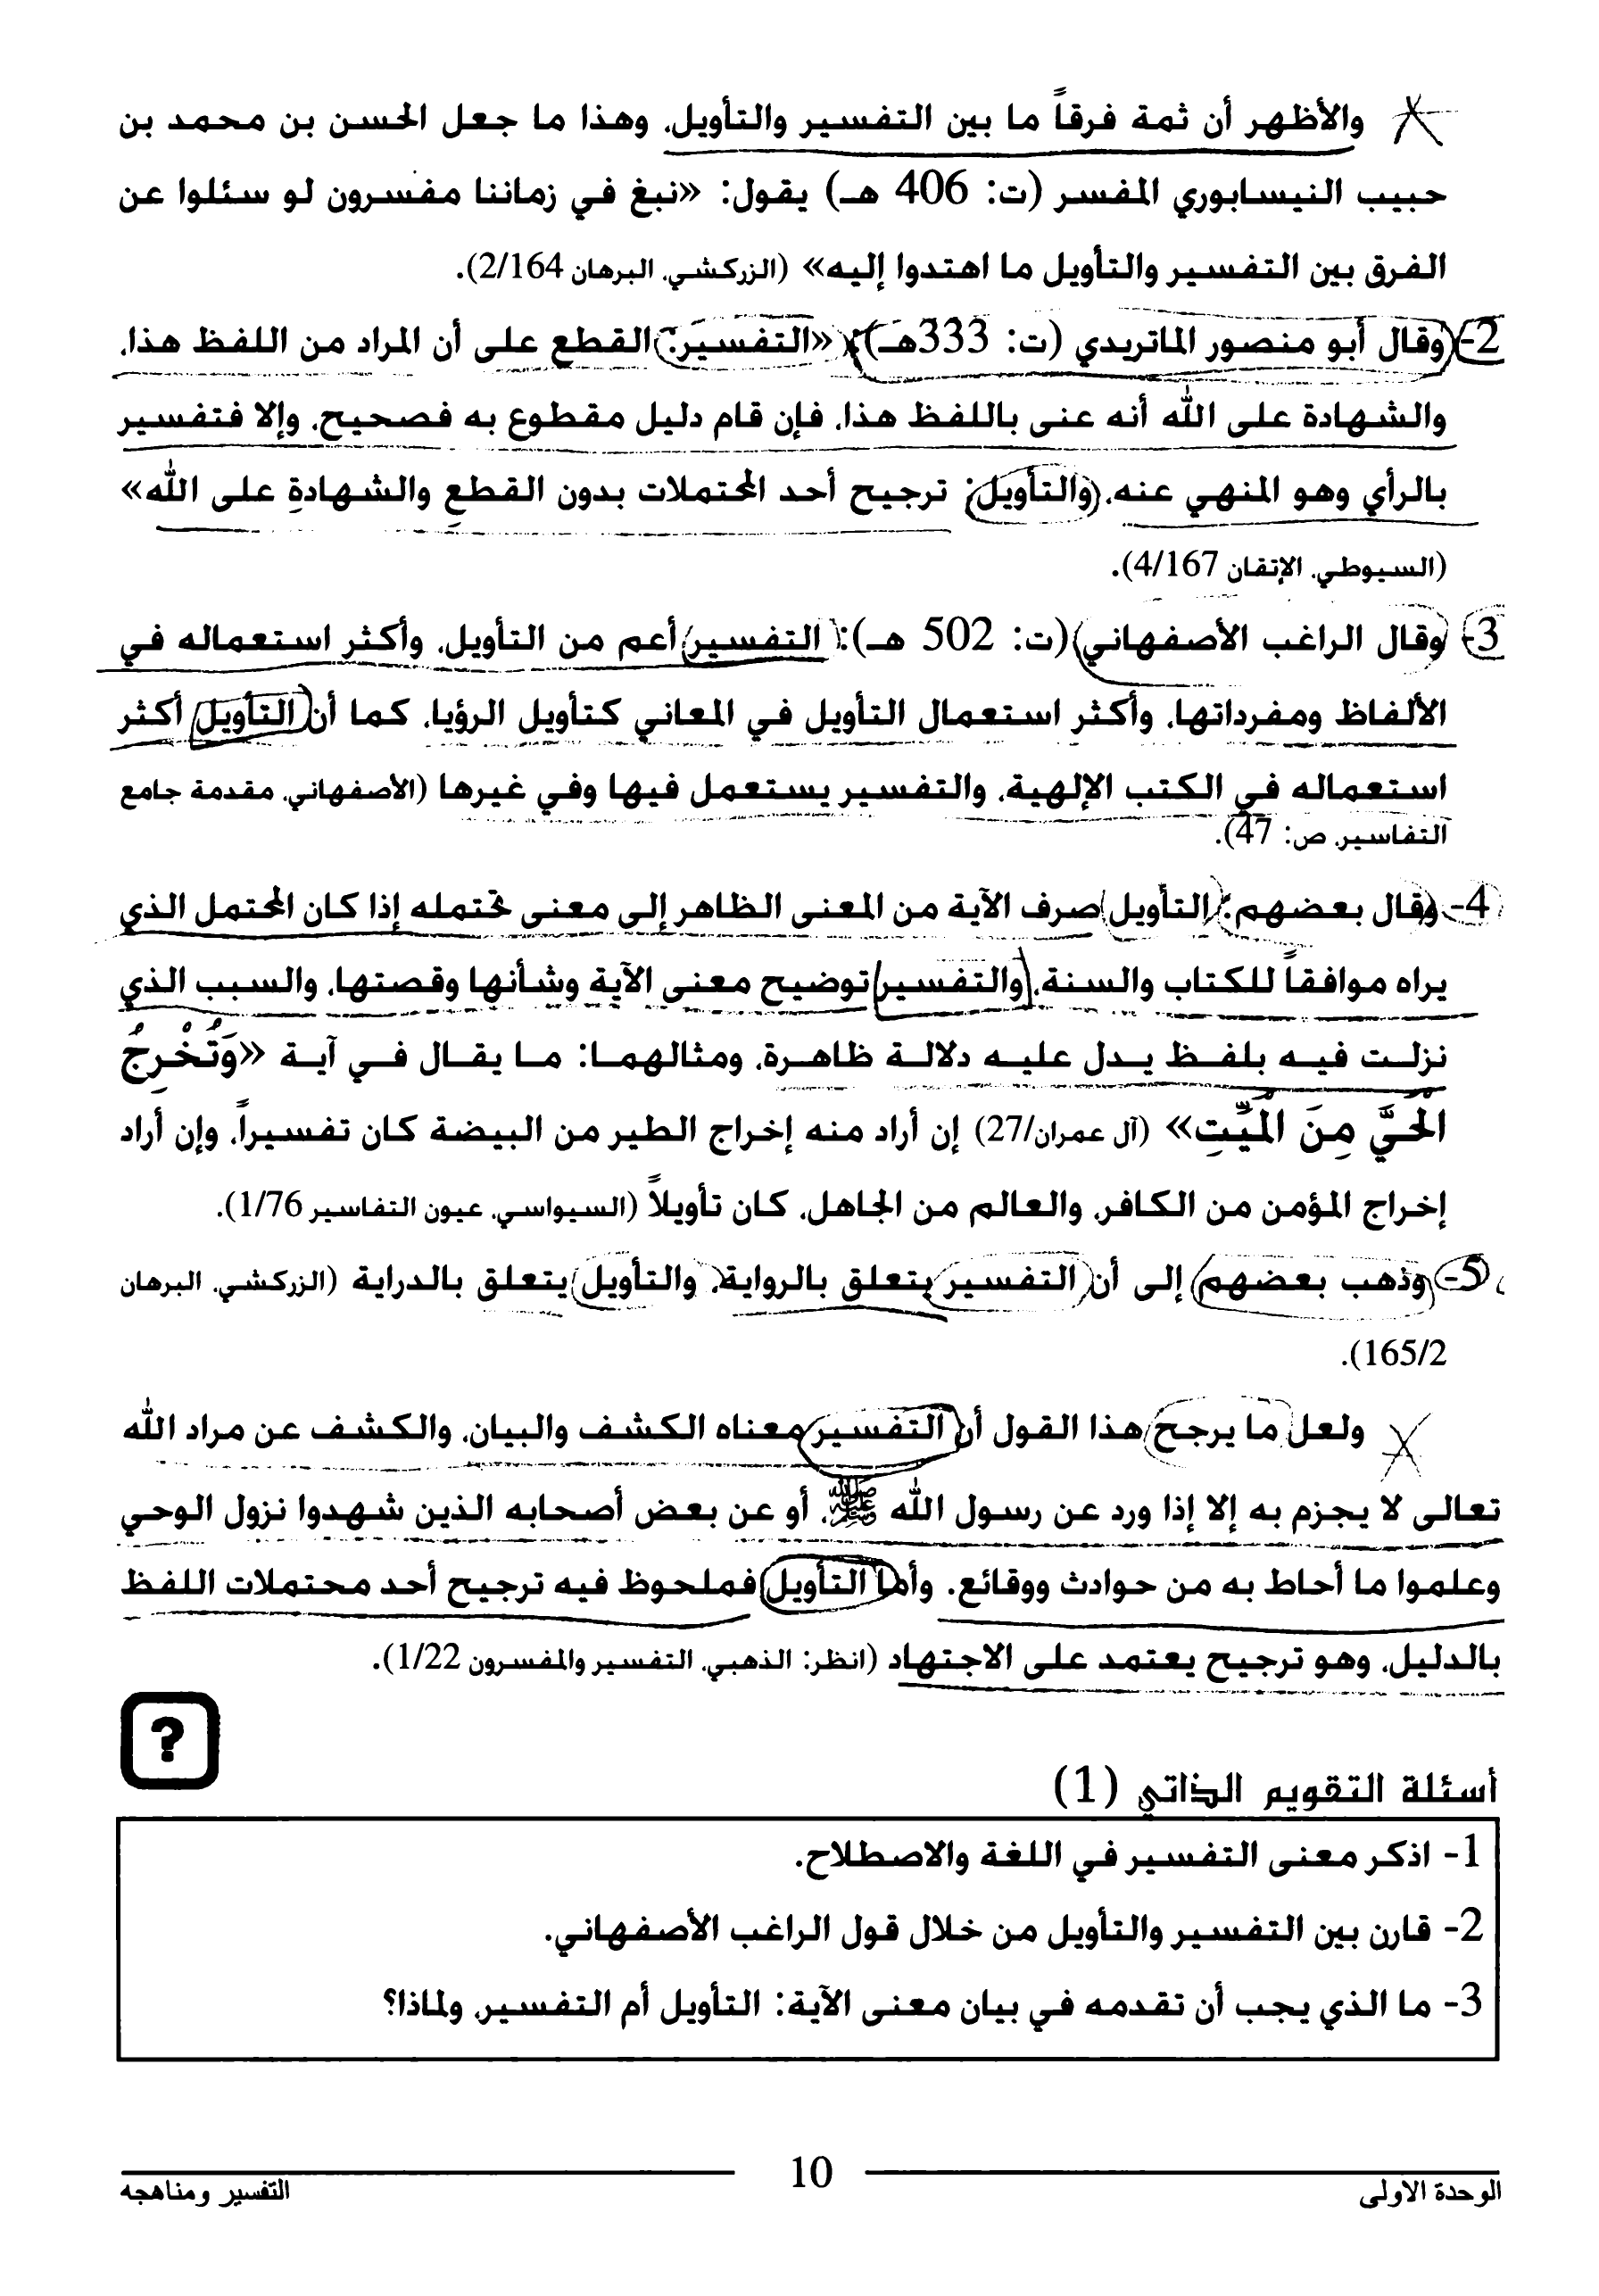 والأظهر أن ثمة فرقاً ما بين التفسير والتأويل، وهذا ما جعل الحسن بن محمد بن
حبيب النيسابوري المفسر (ت: 406 هـ) يقول: «نبغ في زماننا مفسرون لو سئلوا عن
الفرق بين التفسير والتأويل ما اهتدوا إليه» (الزركشي، البرهان 2/164).
2- وقال أبو منصور الماتريدي (ت: 333هـ): «التفسير: القطع على أن المراد من اللفظ هذا،
والشهادة على الله أنه عنى باللفظ هذا، فإن قام دليل مقطوع به فصحيح، وإلا فتفسير
بالرأي وهو المنهي عنه، والتأويل: ترجيح أحد المحتملات بدون القطع والشهادة على الله»
(السيوطي، الإتقان 4/167).
3- وقال الراغب الأصفهاني (ت: 502 هـ): التفسير أعم من التأويل، وأكثر استعماله في
الألفاظ ومفرداتها، وأكثر استعمال التأويل في المعاني كتأويل الرؤيا، كما أن التأويل أكثر
استعماله في الكتب الإلهية، والتفسير يستعمل فيها وفي غيرها (الأصفهاني، مقدمة جامع
التفاسير، ص: 47).
4- وقال بعضهم: التأويل صرف الآية من المعنى الظاهر إلى معنى تحتمله إذا كان المحتمل الذي
يراه موافقاً للكتاب والسنة، والتفسير توضيح معنى الآية وشأنها وقصتها، والسبب الذي
نزلت فيه بلفظ يدل عليه دلالة ظاهرة، ومثالهما: ما يقال في آية «وَتُخْرِجُ
الْحَيَّ مِنَ الْمَيِّتِ» (آل عمران/27) إن أراد منه إخراج الطير من البيضة كان تفسيراً، وإن أراد
إخراج المؤمن من الكافر، والعالم من الجاهل، كان تأويلاً (السيواسي، عيون التفاسير 1/76).
5- وذهب بعضهم إلى أن التفسير يتعلق بالرواية، والتأويل يتعلق بالدراية (الزركشي، البرهان
165/2).
ولعل ما يرجح هذا القول أن التفسير معناه الكشف والبيان، والكشف عن مراد الله
تعالى لا يجزم به إلا إذا ورد عن رسول الله ﷺ، أو عن بعض أصحابه الذين شهدوا نزول الوحي
وعلموا ما أحاط به من حوادث ووقائع. وأما التأويل فملحوظ فيه ترجيح أحد محتملات اللفظ
بالدليل، وهو ترجيح يعتمد على الاجتهاد (انظر: الذهبي، التفسير والمفسرون 1/22).
?
أسئلة التقويم الذاتي (1)
1- اذكر معنى التفسير في اللغة والاصطلاح.
2- قارن بين التفسير والتأويل من خلال قول الراغب الأصفهاني.
3- ما الذي يجب أن تقدمه في بيان معنى الآية: التأويل أم التفسير، ولماذا؟
10
الوحدة الاولى
التفسير ومناهجه